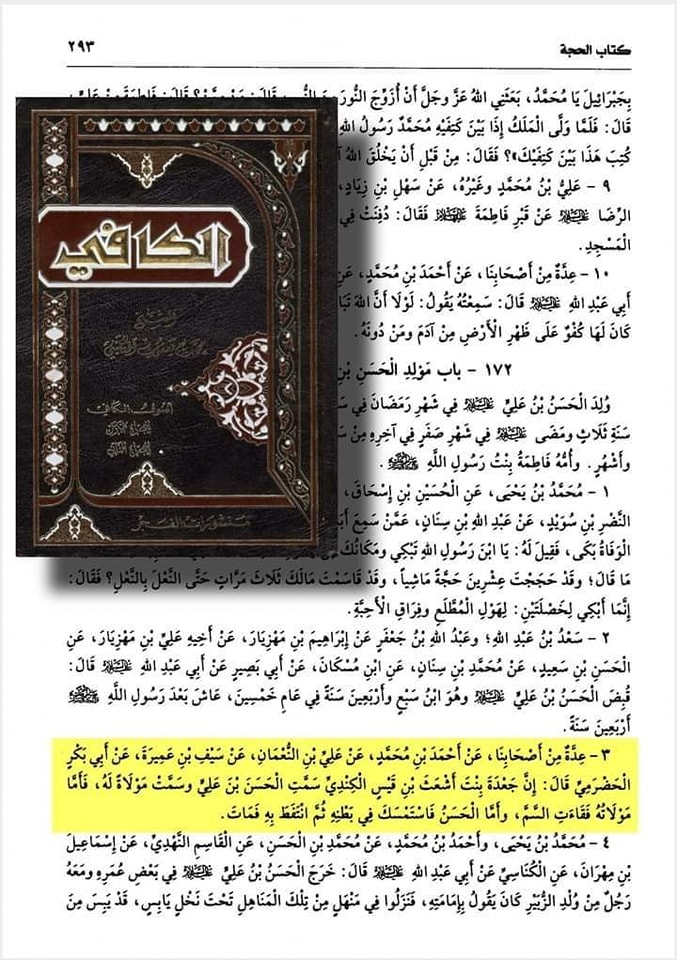 كتاب الحجة
٢٩٣
بِجَبْرَائِيلَ يَا مُحَمَّدُ، بَعَثَنِي اللهُ عَزَّ وَجَلَّ أَنْ أُزَوِّجَ النُّورَ
قَالَ: فَلَمَّا وَلَّى الْمَلَكُ إِذَا بَيْنَ كَتِفَيْهِ مُحَمَّدٌ رَسُولُ اللهِ
كُتِبَ هَذَا بَيْنَ كَتِفَيْكَ»؟ فَقَالَ: مِنْ قَبْلِ أَنْ يَخْلُقَ اللهُ
٩ - عَلِيُّ بْنُ مُحَمَّدٍ وَغَيْرُهُ، عَنْ سَهْلِ بْنِ زِيَادٍ،
الرِّضَا عَلَيْهِ السَّلَام عَنْ قَبْرِ فَاطِمَةَ عَلَيْهَا السَّلَام فَقَالَ: دُفِنَتْ فِي
الْمَسْجِدِ.
١٠ - عِدَّةٌ مِنْ أَصْحَابِنَا، عَنْ أَحْمَدَ بْنِ مُحَمَّدٍ،
أَبِي عَبْدِ اللهِ عَلَيْهِ السَّلَام قَالَ: سَمِعْتُهُ يَقُولُ: لَوْلَا أَنَّ اللهَ
كَانَ لَهَا كُفْوٌ عَلَى ظَهْرِ الْأَرْضِ مِنْ آدَمَ وَمَنْ دُونَهُ.
١٧٢ - باب مَوْلِدِ الْحَسَنِ بْنِ
وُلِدَ الْحَسَنُ بْنُ عَلِيٍّ عَلَيْهِ السَّلَام فِي شَهْرِ رَمَضَانَ فِي
سَنَةِ ثَلَاثٍ وَمَضَى عَلَيْهِ السَّلَام فِي شَهْرِ صَفَرٍ فِي آخِرِهِ مِنْ
وَأَشْهُرٍ. وَأُمُّهُ فَاطِمَةُ بِنْتُ رَسُولِ اللهِ ﷺ.
١ - مُحَمَّدُ بْنُ يَحْيَى، عَنِ الْحُسَيْنِ بْنِ إِسْحَاقَ،
النَّضْرِ بْنِ سُوَيْدٍ، عَنْ عَبْدِ اللهِ بْنِ سِنَانٍ، عَمَّنْ سَمِعَ
الْوَفَاةُ بَكَى، فَقِيلَ لَهُ: يَا ابْنَ رَسُولِ اللهِ تَبْكِي وَمَكَانُكَ
مَا قَالَ؛ وَقَدْ حَجَجْتَ عِشْرِينَ حَجَّةً مَاشِياً، وَقَدْ قَاسَمْتَ مَالَكَ ثَلَاثَ مَرَّاتٍ حَتَّى النَّعْلَ بِالنَّعْلِ؟ فَقَالَ:
إِنَّمَا أَبْكِي لِخَصْلَتَيْنِ: لِهَوْلِ الْمُطَّلَعِ وَفِرَاقِ الْأَحِبَّةِ.
٢ - سَعْدُ بْنُ عَبْدِ اللهِ؛ وَعَبْدُ اللهِ بْنُ جَعْفَرٍ عَنْ إِبْرَاهِيمَ بْنِ مَهْزِيَارَ، عَنْ أَخِيهِ عَلِيِّ بْنِ مَهْزِيَارَ، عَنِ
الْحَسَنِ بْنِ سَعِيدٍ، عَنْ مُحَمَّدِ بْنِ سِنَانٍ، عَنِ ابْنِ مُسْكَانَ، عَنْ أَبِي بَصِيرٍ عَنْ أَبِي عَبْدِ اللهِ عَلَيْهِ السَّلَام قَالَ:
قُبِضَ الْحَسَنُ بْنُ عَلِيٍّ عَلَيْهِ السَّلَام وَهُوَ ابْنُ سَبْعٍ وَأَرْبَعِينَ سَنَةً فِي عَامِ خَمْسِينَ، عَاشَ بَعْدَ رَسُولِ اللهِ ﷺ
أَرْبَعِينَ سَنَةً.
٣ - عِدَّةٌ مِنْ أَصْحَابِنَا، عَنْ أَحْمَدَ بْنِ مُحَمَّدٍ، عَنْ عَلِيِّ بْنِ النُّعْمَانِ، عَنْ سَيْفِ بْنِ عَمِيرَةَ، عَنْ أَبِي بَكْرٍ
الْحَضْرَمِيِّ قَالَ: إِنَّ جَعْدَةَ بِنْتَ أَشْعَثَ بْنِ قَيْسٍ الْكِنْدِيِّ سَمَّتِ الْحَسَنَ بْنَ عَلِيٍّ وَسَمَّتْ مَوْلَاةً لَهُ، فَأَمَّا
مَوْلَاتُهُ فَقَاءَتِ السَّمَّ، وَأَمَّا الْحَسَنُ فَاسْتَمْسَكَ فِي بَطْنِهِ ثُمَّ انْتَفَطَ بِهِ فَمَاتَ.
٤ - مُحَمَّدُ بْنُ يَحْيَى، وَأَحْمَدُ بْنُ مُحَمَّدٍ، عَنْ مُحَمَّدِ بْنِ الْحَسَنِ، عَنِ الْقَاسِمِ النَّهْدِيِّ، عَنْ إِسْمَاعِيلَ
بْنِ مِهْرَانَ، عَنِ الْكُنَاسِيِّ عَنْ أَبِي عَبْدِ اللهِ عَلَيْهِ السَّلَام قَالَ: خَرَجَ الْحَسَنُ بْنُ عَلِيٍّ عَلَيْهِ السَّلَام فِي بَعْضِ عُمَرِهِ وَمَعَهُ
رَجُلٌ مِنْ وُلْدِ الزُّبَيْرِ كَانَ يَقُولُ بِإِمَامَتِهِ، فَنَزَلُوا فِي مَنْهَلٍ مِنْ تِلْكَ الْمَنَاهِلِ تَحْتَ نَخْلٍ يَابِسٍ، قَدْ يَبِسَ مِنَ
الكافي
الشيخ
أصول الكافي
منشورات الفجر